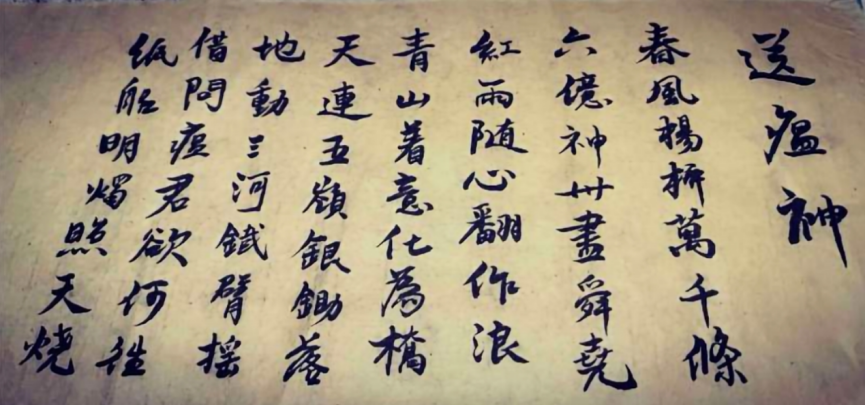 送瘟神
春風楊柳萬千條
六億神州盡舜堯
紅雨随心翻作浪
青山着意化為橋
天連五嶺銀鋤落
地動三河鐵臂摇
借問瘟君欲何往
纸船明燭照天燒